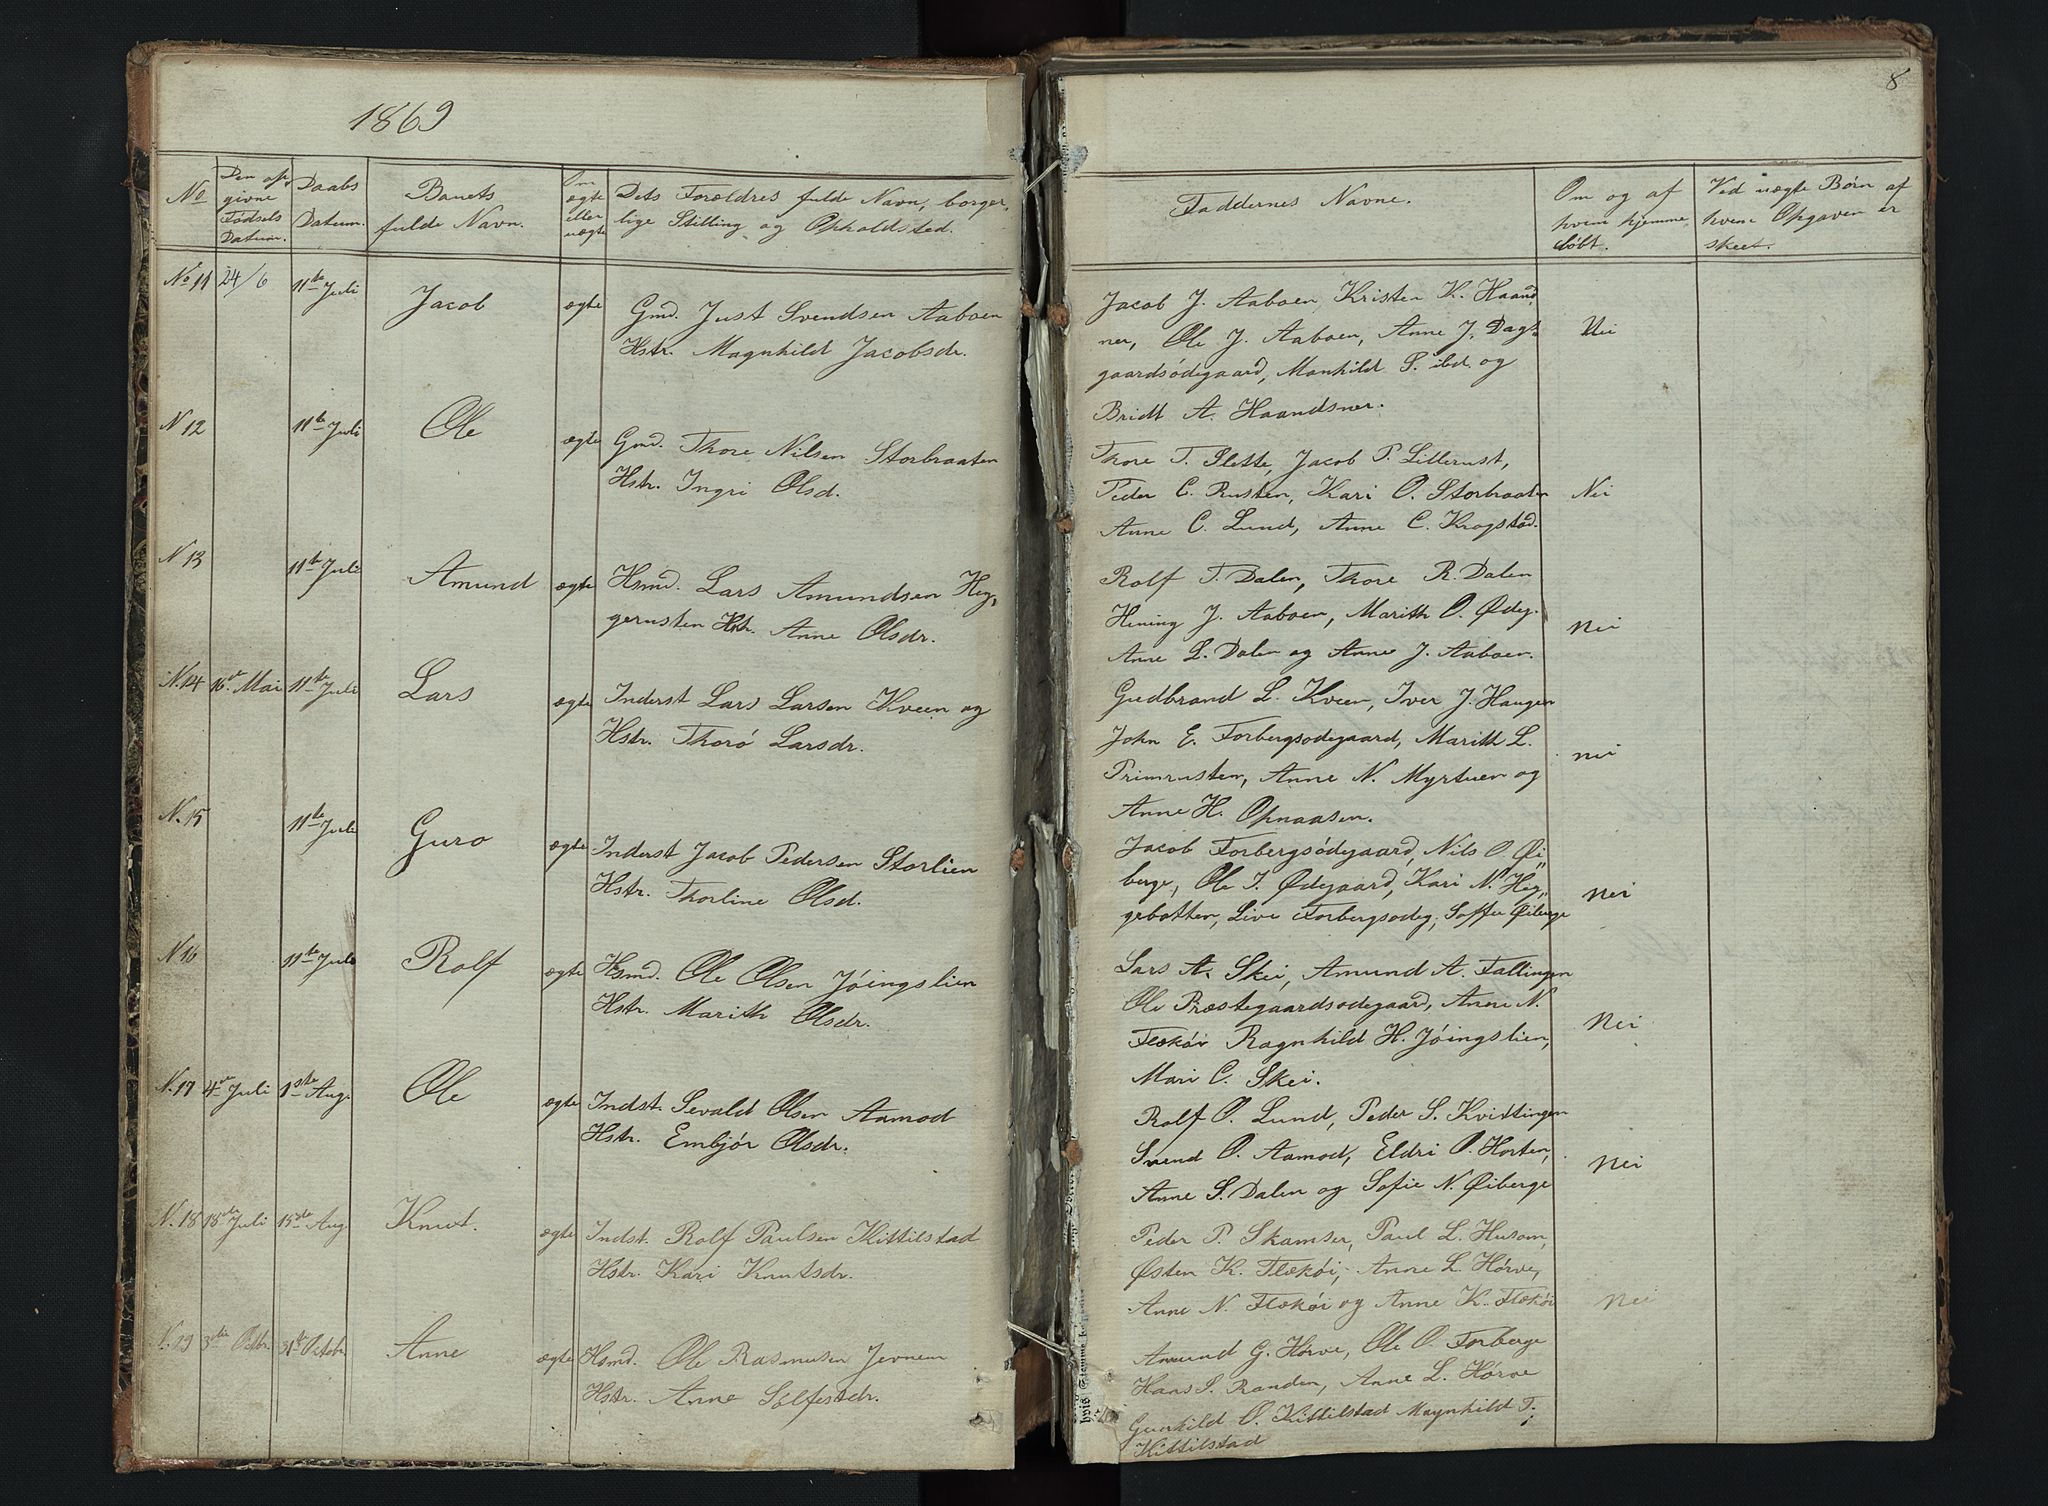 1869
8
No
Den op-
givne
Fødsels
Datum.
Daabs
Datum.
Barnets
fulde Navn.
Om
ægte
eller
uægte
Dets Forældres fulde Navn, borger-
lige Stilling og Opholdsted.
Faddernes Navne.
Om og af
hvem hjemme-
døbt.
Ved uægte Børn af
hvem Opgaven er
skeet.
No 11 24/6 11te Juli Jacob ægte Gmd. Just Svendsen Aaboen
Hstr. Magnhild Jacobsdr.
Jacob J. Aaboen, Kristen K. Haand,
ner, Ole J. Aaboen, Anne J. Dags-
gaardsødegaard, Manhild S. ibd. og
Bridt A. Haandsner.
Nei
N 12 11te Juli Ole ægte Gmd. Thore Nilsen Storbraaten
Hstr. Ingri Olsd.
Thore T. Slette, Jacob P. Lillerust,
Peder C. Rusten, Kari O. Storbraaten
Anne C. Lund, Anne C. Krogstad.
Nei
N 13 11te Juli Amund ægte Hsmd. Lars Amundsen Heg,
gerusten Hstr. Anne Olsdr.
Rolf T. Dalen, Thore R. Dalen
Hening J. Aaboen, Marith O. Ødeg.
Anne L. Dalen og Anne J. Aaboen.
Nei
N. 14 16de Mai 11te Juli Lars ægte Inderst Lars Larsen Kveen og
Hstr. Thorø Larsdr.
Gudbrand L. Kveen, Iver J. Haugen
John E. Forbergsodegaard, Marith L.
Primrusten, Anne N. Myrtuen og
Anne H. Opnaasen.
nei
N. 15 11te Juli Guro ægte Inderst Jacob Pedersen Storlien
Hstr. Thorline Olsd.
Jacob Forbergsødegaard, Nils O. Øi,
berge, Ole T. Ødegaard, Kari N. Heg,,
gebotten, Live Forbergsodeg; Soffie Øiberge
Nei
N 16 11te Juli Rolf ægte Hsmd. Ole Olsen Jøingslien
Hstr. Marith Olsdr.
Lars A. Skei, Amund A. Fallingen
Ole Præstegaardsodegaard, Anne N.
Flækøi Ragnhild H. Jøingslien,
Mari C. Skei.
Nei
N. 17 4de Juli 1ste Aug. Ole ægte Indst. Sevald Olsen Aamod
Hstr. Embjør Olsdr.
Rolf O. Lund, Peder S. Kvittingen
Svend O. Aamod, Eldri O. Horten,
Anne S. Dalen og Sofie N. Øiberge
Nei
N. 18 18de Juli 15de Aug. Knut. ægte Indst. Rolf Paulsen Kittilstad
Hstr. Kari Knutsdr.
Peder P. Skamser, Paul L. Husom,
Østen K. Flækøi, Anne L. Hørve,
Anne N. Flækøi og Anne K. Flækøi
Nei
N. 19 3die Octbr. 31te Octobr Anne ægte Hsmd. Ole Rasmusen Jevnem
Hstr. Anne Sølfestdr.
Amund G. Hørve, Ole O. Forberge
Hans S. Randen, Anne L. Hørve
Gunhild O. Kittilstad Magnhild T.
Kittilstad